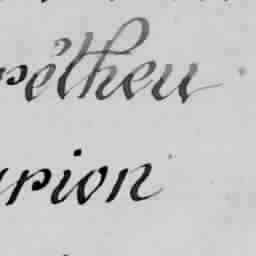 rétheu
urion